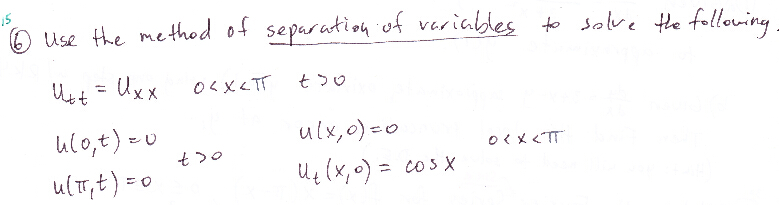 15
⑥ Use the method of separation of variables to solve the following.
Utt = Uxx 0<x<π t>0
u(0,t)=0 u(x,0)=0
t>0 0<x<π
u(π,t)=0 Ut(x,0) = cosx